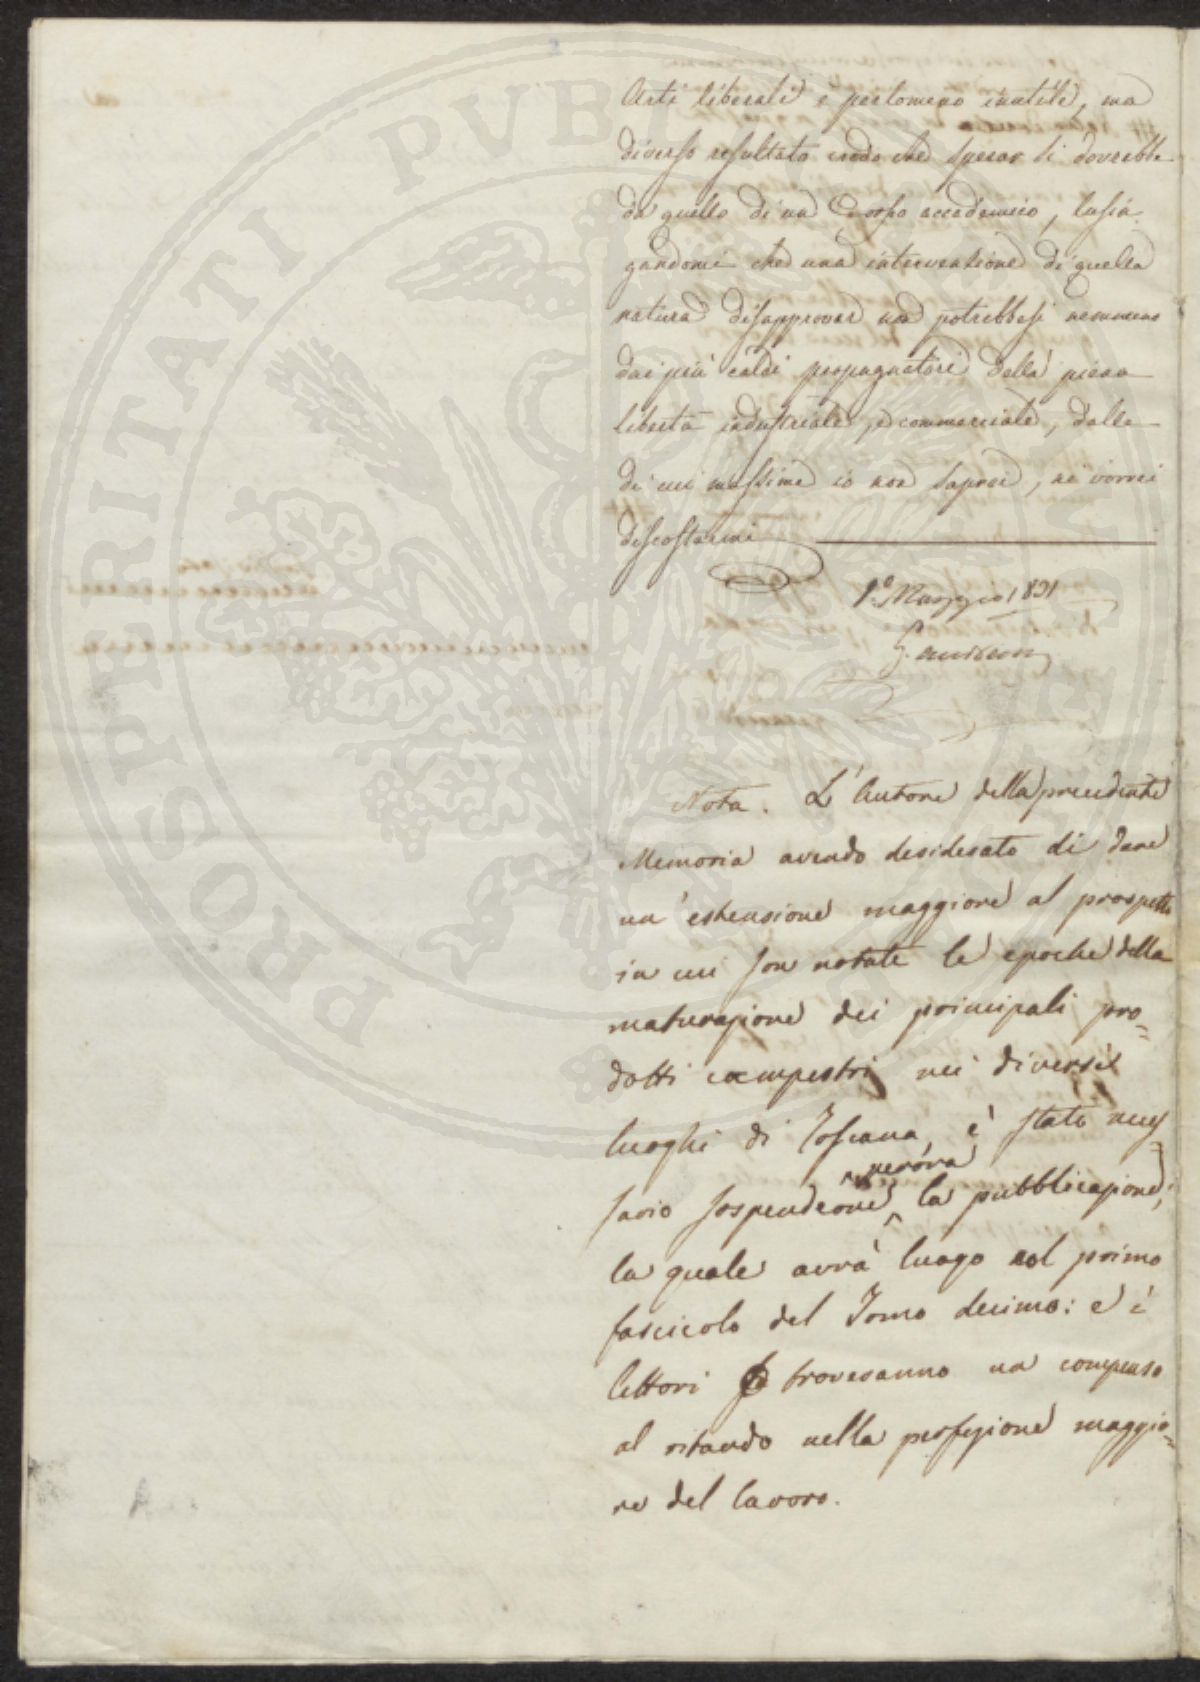 Arti liberali è perlomeno inutile, ma
diverso resultato credo che sperar si dovrebbe
da quello di un Corpo accademico, lusin-
gandomi che una intervenzione di quella
natura disapprovar non potrebbesi nemmeno
dai più caldi propugnatori della piena
libertà industriale, e commerciale, dalle
di cui massime io non saprei, nè vorrei
discostarmi
1.º Maggio 1831
Nota. L'Autore della precedente
Memoria avendo desiderato di dare
un'estensione maggiore al prospetto
in cui son notate le epoche della
maturazione dei principali pro=
dotti campestri nei diversi
luoghi di Toscana, è stato neces=
sario sospenderne per ora la pubblicazione;
la quale avrà luogo nel primo
fascicolo del Tomo decimo: e i
lettori troveranno un compenso
al ritardo nella perfezione maggio=
re del lavoro.
PROSPERITATI PUBLICAE